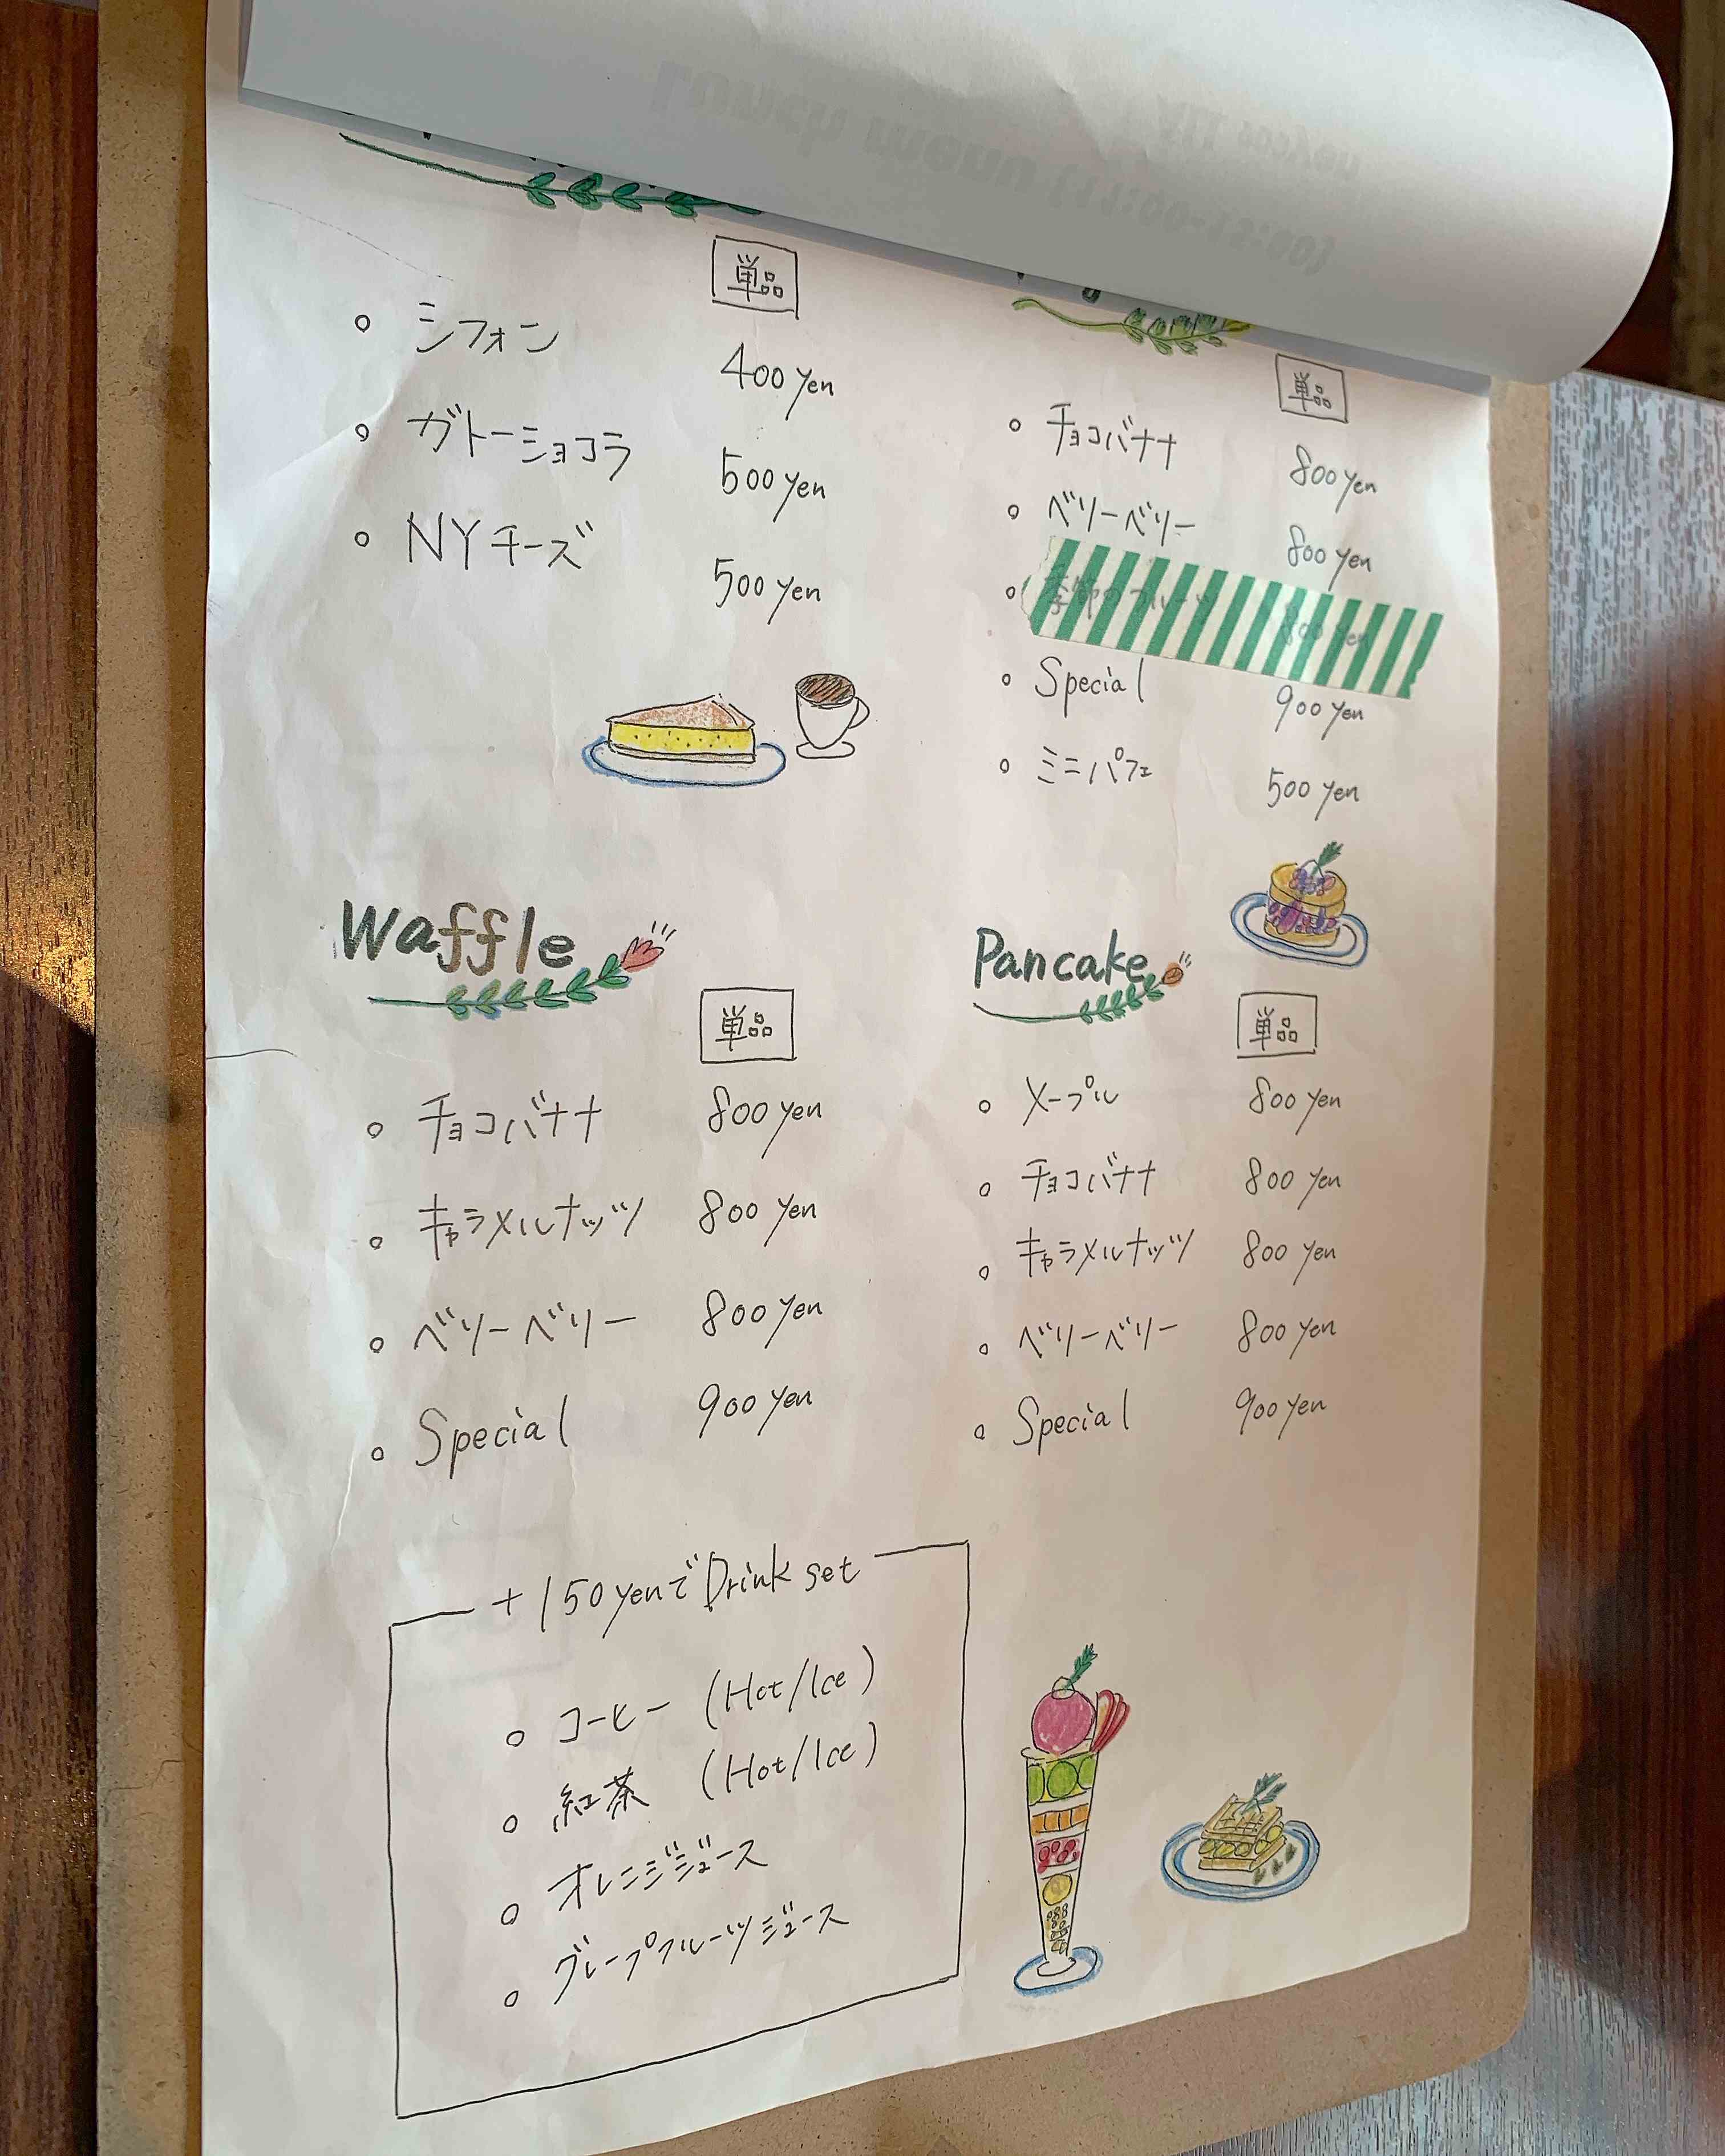 Lunch menu (11:00-15:00)
単品
シフォン 400 yen
ガトーショコラ 500 yen
NYチーズ 500 yen
単品
チョコバナナ 800 yen
ベリーベリー 800 yen
季節のフルーツ 800 yen
Special 900 yen
ミニパフェ 500 yen
Waffle
単品
チョコバナナ 800 yen
キャラメルナッツ 800 yen
ベリーベリー 800 yen
Special 900 yen
Pancake
単品
メープル 800 yen
チョコバナナ 800 yen
キャラメルナッツ 800 yen
ベリーベリー 800 yen
Special 900 yen
+150yenでDrink set
コーヒー (Hot/Ice)
紅茶 (Hot/Ice)
オレンジジュース
グレープフルーツジュース